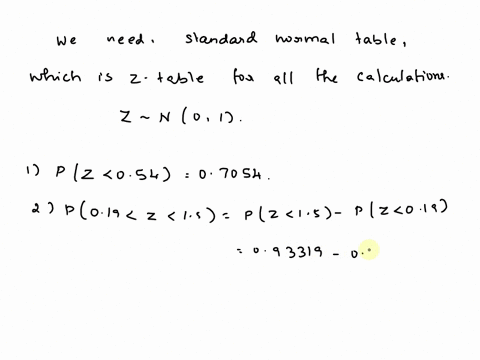 We need. standard normal table,
which is z-table for all the calculations.
Z ~ N (0, 1).
1) P(Z < 0.54) = 0.7054.
2) P(0.19 < Z < 1.5) = P(Z < 1.5) - P(Z < 0.19)
= 0.93319 - 0.